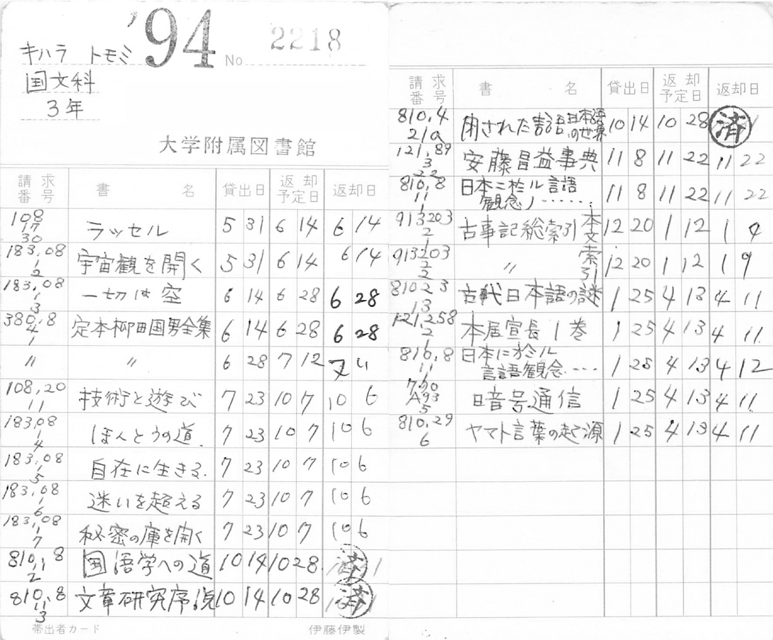 '94
No 2218
キハラ トモミ
国文科
3年
大学附属図書館
請求番号 書名 貸出日 返却予定日 返却日
108 17 30 ラッセル 5 31 6 14 6 14
183.08 1 2 宇宙観を開く 5 31 6 14 6 14
183.08 1 3 一切は空 6 14 6 28 6 28
380.8 4 1 定本柳田国男全集 6 14 6 28 6 28
〃 〃 6 28 7 12
108.20 11 技術と遊び 7 23 10 7 10 6
183.08 1 4 ほんとうの道 7 23 10 7 10 6
183.08 1 5 自在に生きる 7 23 10 7 10 6
183.08 1 6 迷いを超える 7 23 10 7 10 6
183.08 1 7 秘密の庫を開く 7 23 10 7 10 6
810.8 11 2 国語学への道 10 14 10 28 済
810.8 11 3 文章研究序説 10 14 10 28 済
帯出者カード 伊藤伊製
請求番号 書名 貸出日 返却予定日 返却日
810.4 21a 閉された言語 日本語の世界 10 14 10 28 済
121.89 3 22 安藤昌益事典 11 8 11 22 11 22
810.8 11 1 日本ニ於ル言語観念ノ…… 11 8 11 22 11 22
913203 2 1 古事記総索引 本文 12 20 1 12 1 9
913203 2 2 〃 索引 12 20 1 12 1 9
81023 13 古代日本語の謎 1 25 4 13 4 11
121.258 2 1 本居宣長 1巻 1 25 4 13 4 11
810.8 11 1 日本に於ル言語観念…… 1 25 4 13 4 12
A93 5 暗号通信 1 25 4 13 4 11
810.29 6 ヤマト言葉の起源 1 25 4 13 4 11